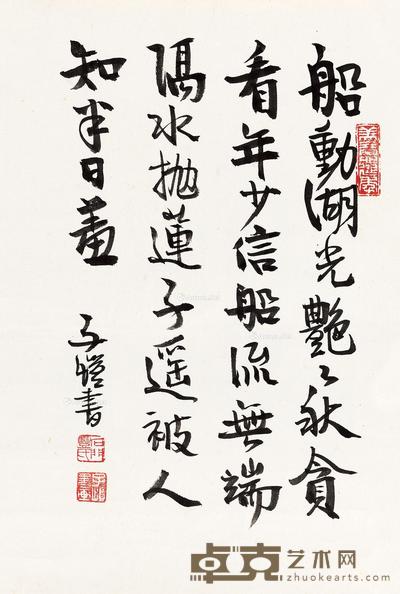 船動湖光艷〻秋貪
看年少信船流無端
隔水抛蓮子遥被人
知半日羞
子愷書
卓克艺术网
zhuokearts.com